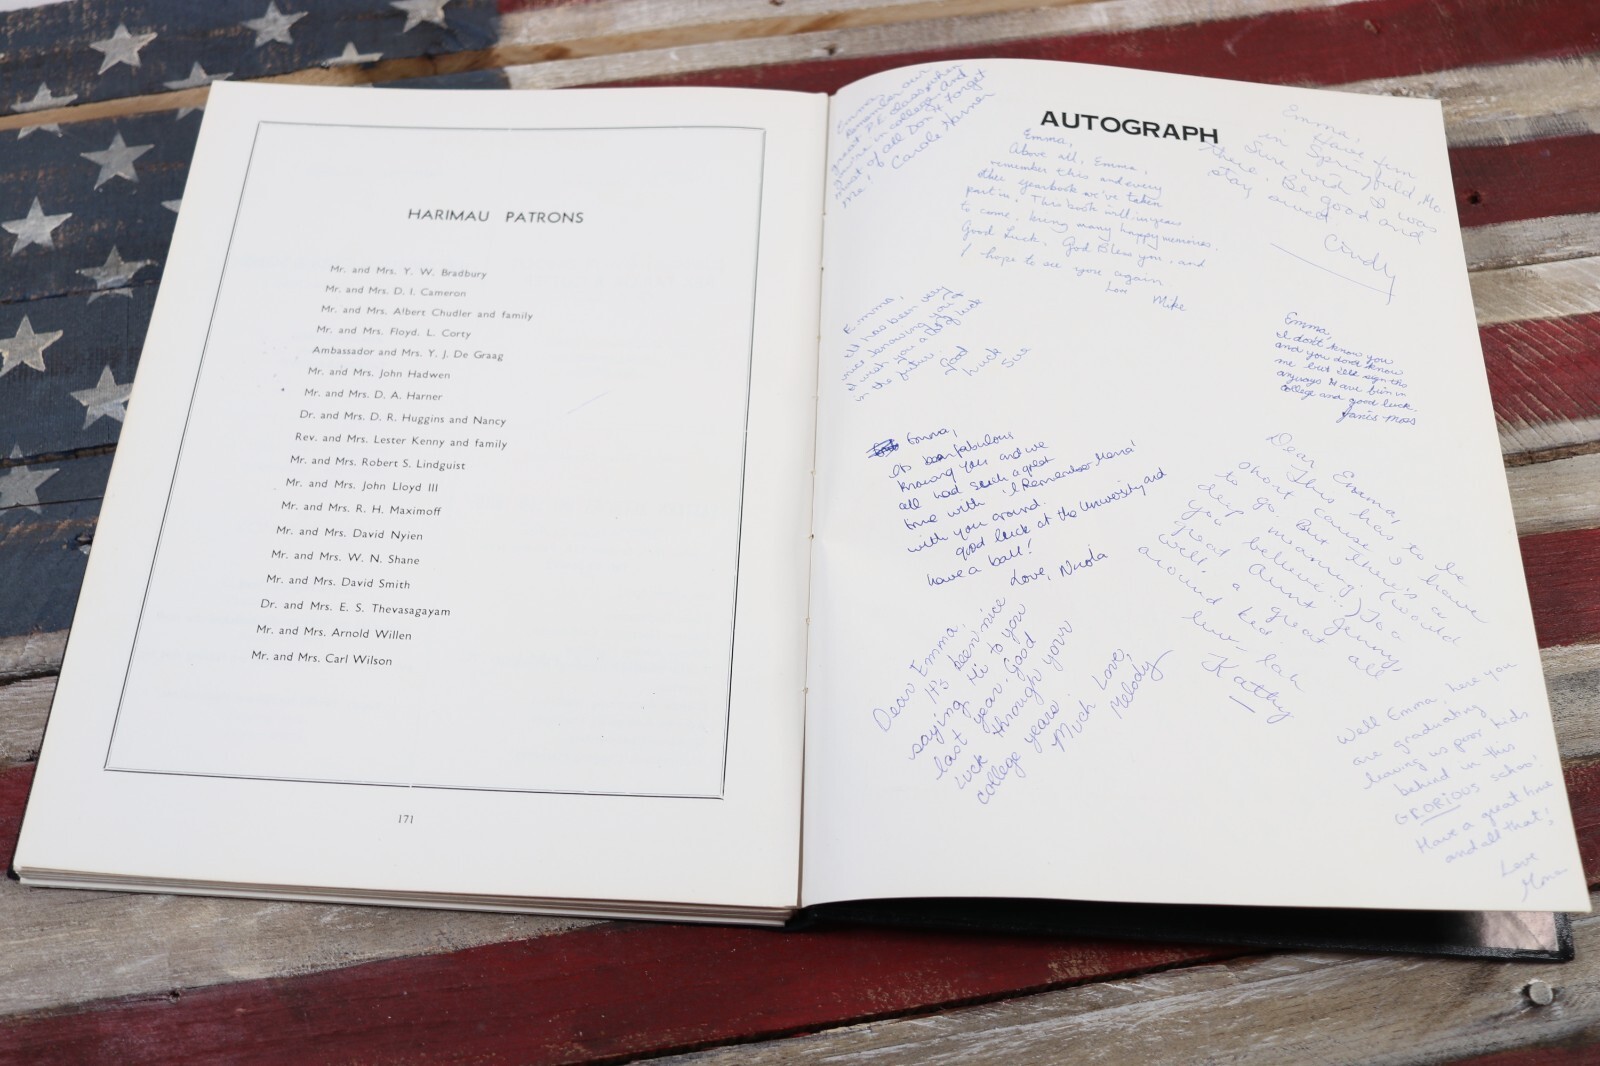 HARIMAU PATRONS
Mr. and Mrs. Y. W. Bradbury
Mr. and Mrs. D. I. Cameron
Mr. and Mrs. Albert Chudler and family
Mr. and Mrs. Floyd. L. Corty
Ambassador and Mrs. Y. J. De Graag
Mr. and Mrs. John Hadwen
Mr. and Mrs. D. A. Harner
Dr. and Mrs. D. R. Huggins and Nancy
Rev. and Mrs. Lester Kenny and family
Mr. and Mrs. Robert S. Lindguist
Mr. and Mrs. John Lloyd III
Mr. and Mrs. R. H. Maximoff
Mr. and Mrs. David Nyien
Mr. and Mrs. W. N. Shane
Mr. and Mrs. David Smith
Dr. and Mrs. E. S. Thevasagayam
Mr. and Mrs. Arnold Willen
Mr. and Mrs. Carl Wilson
171
AUTOGRAPH
Emma,
remember our
great P.E. class when
you're in college. And
most of all Don't forget
me!! Carole Harner
Emma,
Above all, Emma,
remember this and every
other yearbook we've taken
part in. This book will in years
to come, bring many happy memories.
Good Luck, God Bless you, and
I hope to see you again
Love
Mike
Emma,
Have fun
in Springfield, Mo.
Sure wish I was
there. Be good and
stay sweet
Cindy
Emma,
It has been very
nice knowing you &
I wish you a lot of luck
in the future.
Good
Luck
Sue
Emma,
I don't know you
and you don't know
me but I'll sign this
anyways Have fun in
college and good luck.
Janis Moss
Emma,
It's been fabulous
knowing you and we
all had such a great
time with 'I Remember Mama'
with you around.
Good luck at the University and
have a ball!
Love, Nicola
Dear Emma,
This has to be
short cause I have
to go. But there's a
deep meaning. (would
you believe...) To a
great Aunt Jenny,
well, a great all
around kid.
luv-lah
Kathy
Dear Emma,
It's been nice
saying Hi to you
last year. Good
luck through your
college years.
Much Love,
Melody
Well Emma, here you
are graduating
leaving us poor kids
behind in this
GLORIOUS school
Have a great time
and all that!
Love
Mona